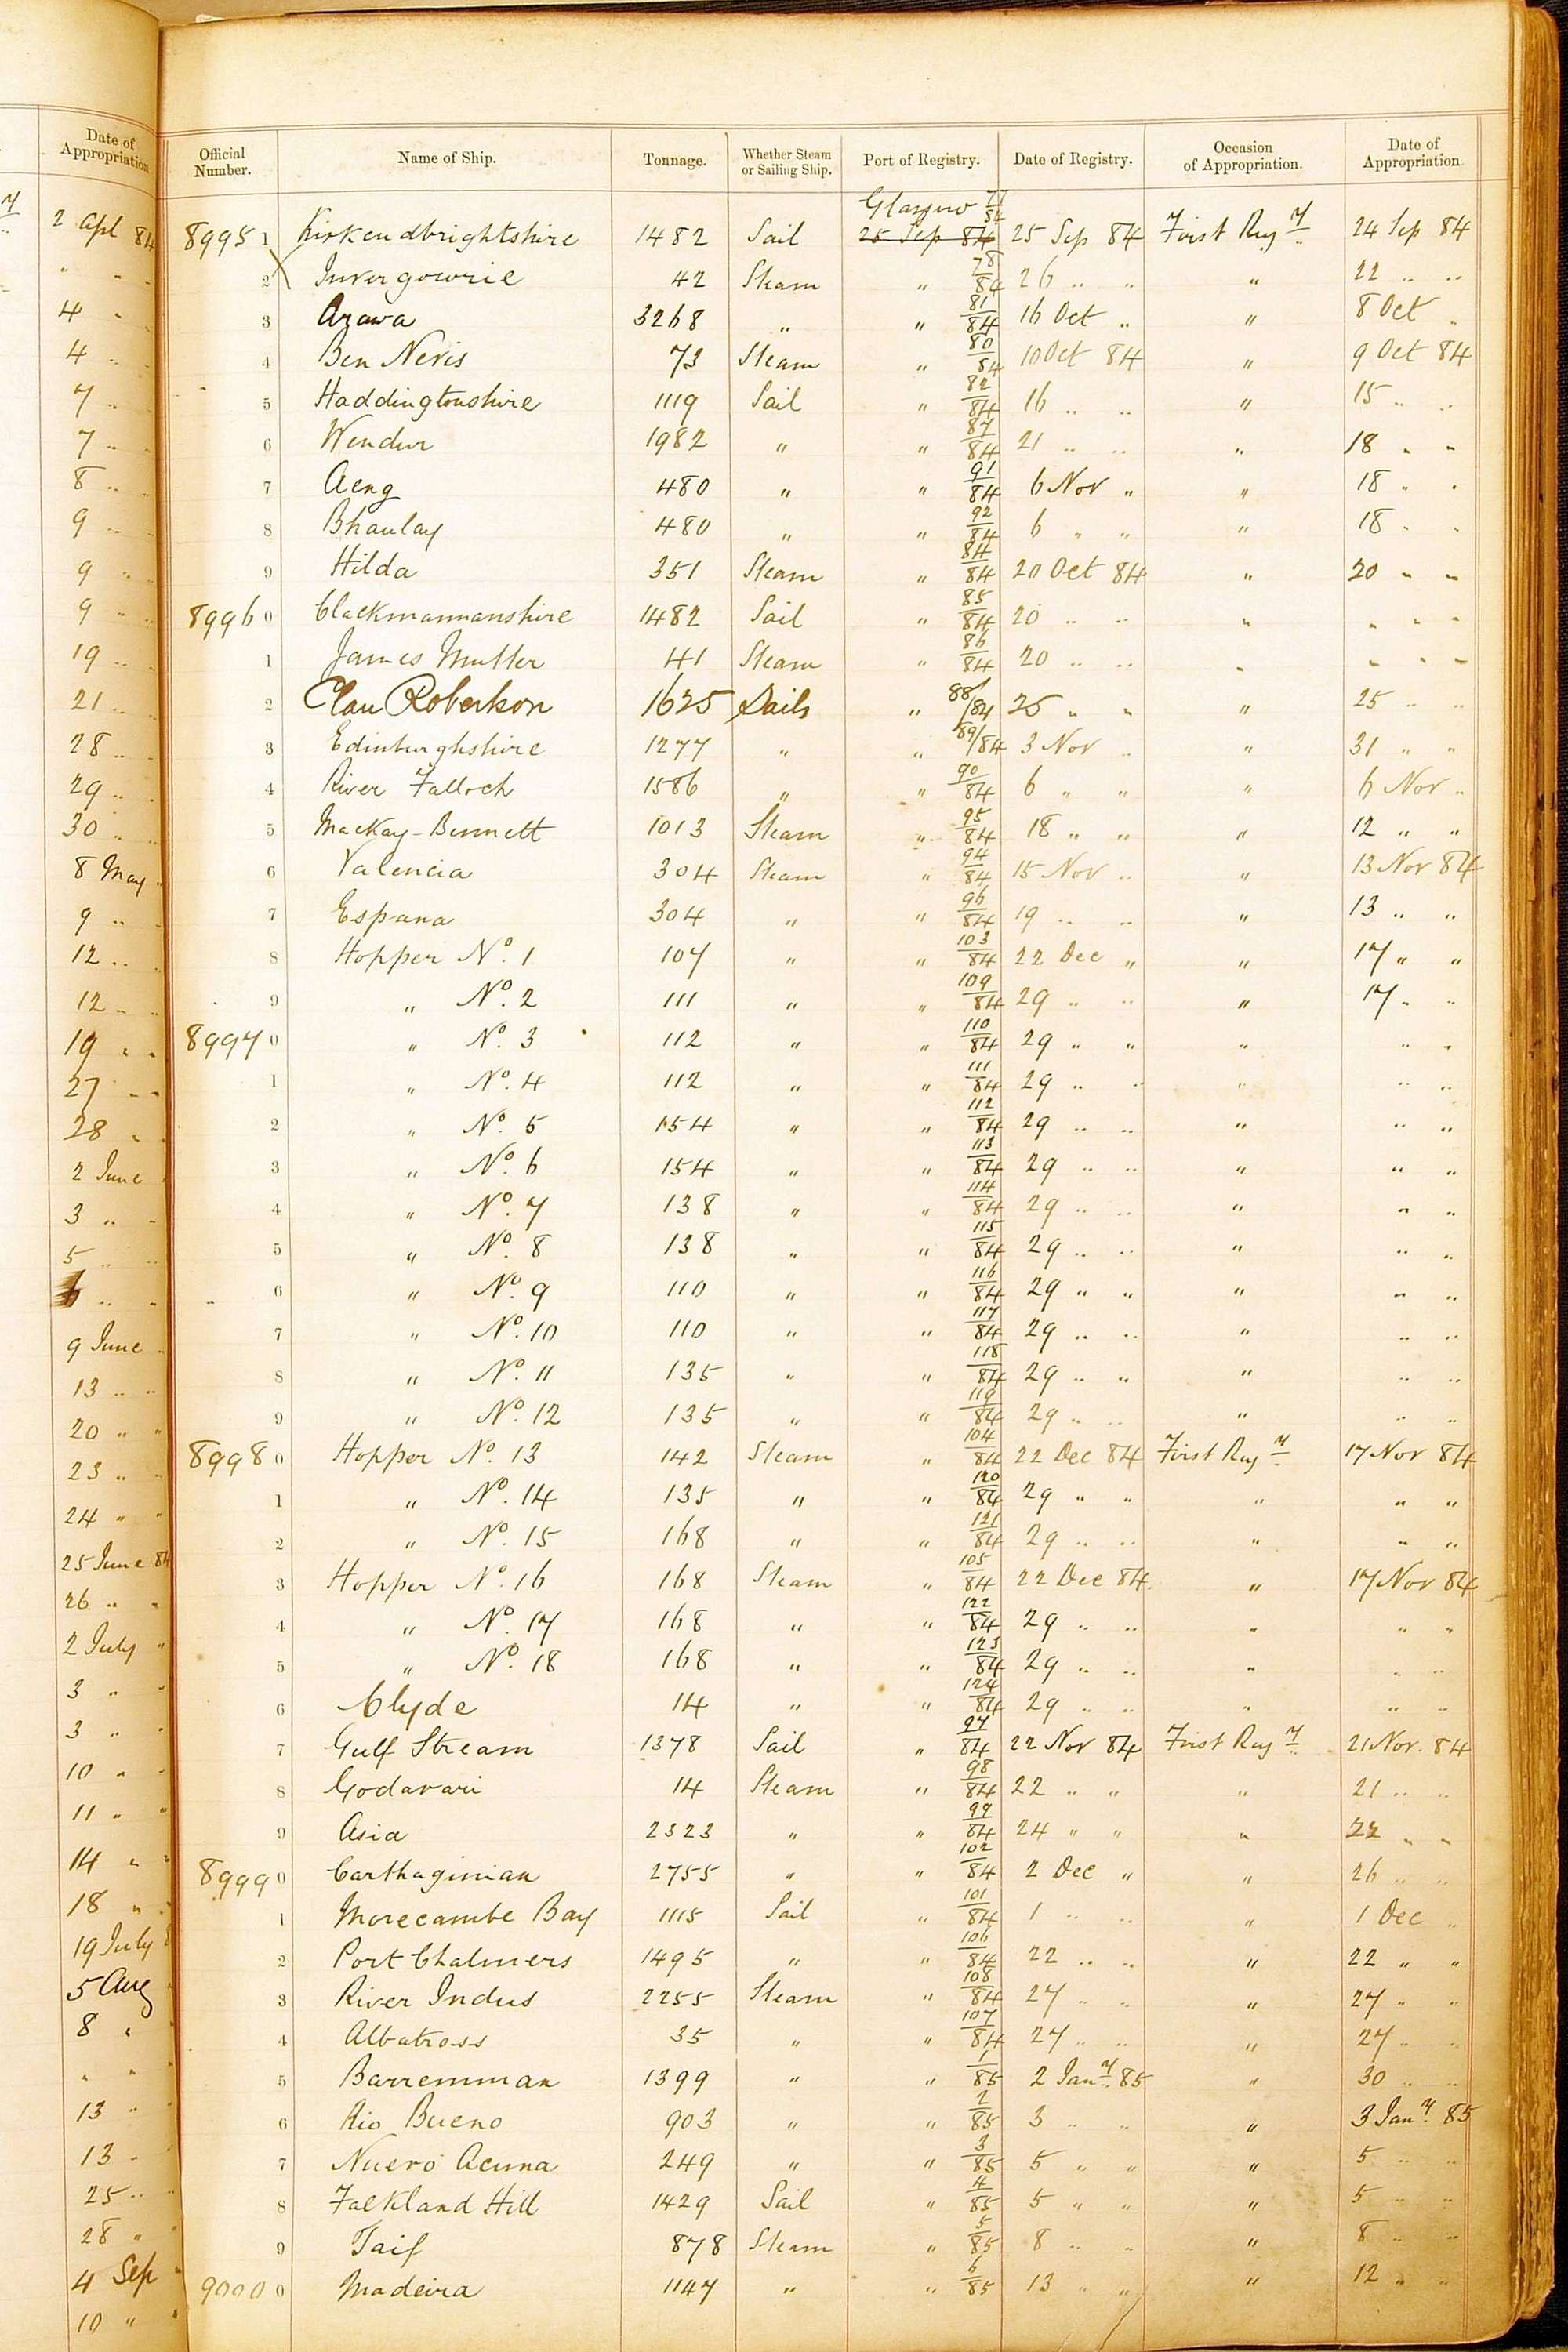 Date of Appropriation
2 Apl 84
" "
4 "
4 "
7 "
7 "
8 "
9 "
9 "
9 "
19 "
21 "
28 "
29 "
30 "
8 May "
9 "
12 "
12 "
19 " "
27 " "
28 "
2 June
3 "
5 "
6 "
9 June
13 "
20 " "
23 "
24 "
25 June 84
26 "
2 July "
3 "
3 "
10 "
11 "
14 "
18 "
19 July
5 Aug
8 "
" "
13 "
13 "
25 "
28 "
4 Sep
10 "
Official Number. Name of Ship. Tonnage. Whether Steam or Sailing Ship. Port of Registry. Date of Registry. Occasion of Appropriation. Date of Appropriation.
89951 Kirkcudbrightshire 1482 Sail Glasgow 77/84 25 Sep 84 25 Sep 84 First Regy 24 Sep 84
2 Invergowrie 42 Steam " 78/84 26 " " " 22 " "
3 Arawa 3268 " " 81/84 16 Oct " " 8 Oct "
4 Ben Nevis 73 Steam " 80/84 10 Oct 84 " 9 Oct 84
5 Haddingtonshire 1119 Sail " 82/84 16 " " " 15 " "
6 Wendur 1982 " " 87/84 21 " " " 18 " "
7 Aeng 480 " " 91/84 6 Nov " " 18 " "
8 Bhaulay 480 " " 92/84 6 " " " 18 " "
9 Hilda 351 Steam " 84/84 20 Oct 84 " 20 " "
89960 Clackmannanshire 1482 Sail " 85/84 20 " " " " " "
1 James Mutter 41 Steam " 86/84 20 " " " " " "
2 Clan Robertson 1625 Sails " 88/84 25 " " " 25 " "
3 Edinburghshire 1277 " " 89/84 3 Nov " " 31 " "
4 River Falloch 1586 " " 90/84 6 " " " 6 Nov "
5 Mackay-Bennett 1013 Steam " 95/84 18 " " " 12 " "
6 Valencia 304 Steam " 94/84 15 Nov " " 13 Nov 84
7 Espana 304 " " 96/84 19 " " " 13 " "
8 Hopper No. 1 107 " " 103/84 22 Dec " " 17 " "
9 " No. 2 111 " " 109/84 29 " " " 17 " "
89970 " No. 3 112 " " 110/84 29 " " " " "
1 " No. 4 112 " " 111/84 29 " " " " "
2 " No. 5 154 " " 112/84 29 " " " " "
3 " No. 6 154 " " 113/84 29 " " " " "
4 " No. 7 138 " " 114/84 29 " " " " "
5 " No. 8 138 " " 115/84 29 " " " " "
6 " No. 9 110 " " 116/84 29 " " " " "
7 " No. 10 110 " " 117/84 29 " " " " "
8 " No. 11 135 " " 118/84 29 " " " " "
9 " No. 12 135 " " 119/84 29 " " " " "
89980 Hopper No. 13 142 Steam " 104/84 22 Dec 84 First Regy 17 Nov 84
1 " No. 14 135 " " 120/84 29 " " " " "
2 " No. 15 168 " " 121/84 29 " " " " "
3 Hopper No. 16 168 Steam " 105/84 22 Dec 84 " 17 Nov 84
4 " No. 17 168 " " 122/84 29 " " " " "
5 " No. 18 168 " " 123/84 29 " " " " "
6 Clyde 14 " " 124/84 29 " " " " "
7 Gulf Stream 1378 Sail " 97/84 22 Nov 84 First Regy 21 Nov. 84
8 Godavari 14 Steam " 98/84 22 " " " 21 " "
9 Asia 2323 " " 99/84 24 " " " 22 " "
89990 Carthaginian 2755 " " 102/84 2 Dec " " 26 " "
1 Morecambe Bay 1115 Sail " 101/84 1 " " " 1 Dec "
2 Port Chalmers 1495 " " 106/84 22 " " " 22 " "
3 River Indus 2255 Steam " 108/84 27 " " " 27 " "
4 Albatross 35 " " 107/84 27 " " " 27 " "
5 Barremman 1399 " " 1/85 2 Jany 85 " 30 " "
6 Rio Bueno 903 " " 2/85 3 " " " 3 Jany 85
7 Nuevo Acuna 249 " " 3/85 5 " " " 5 " "
8 Falkland Hill 1429 Sail " 4/85 5 " " " 5 " "
9 Taif 878 Steam " 5/85 8 " " " 8 " "
90000 Madeira 1147 " " 6/85 13 " " " 12 " "